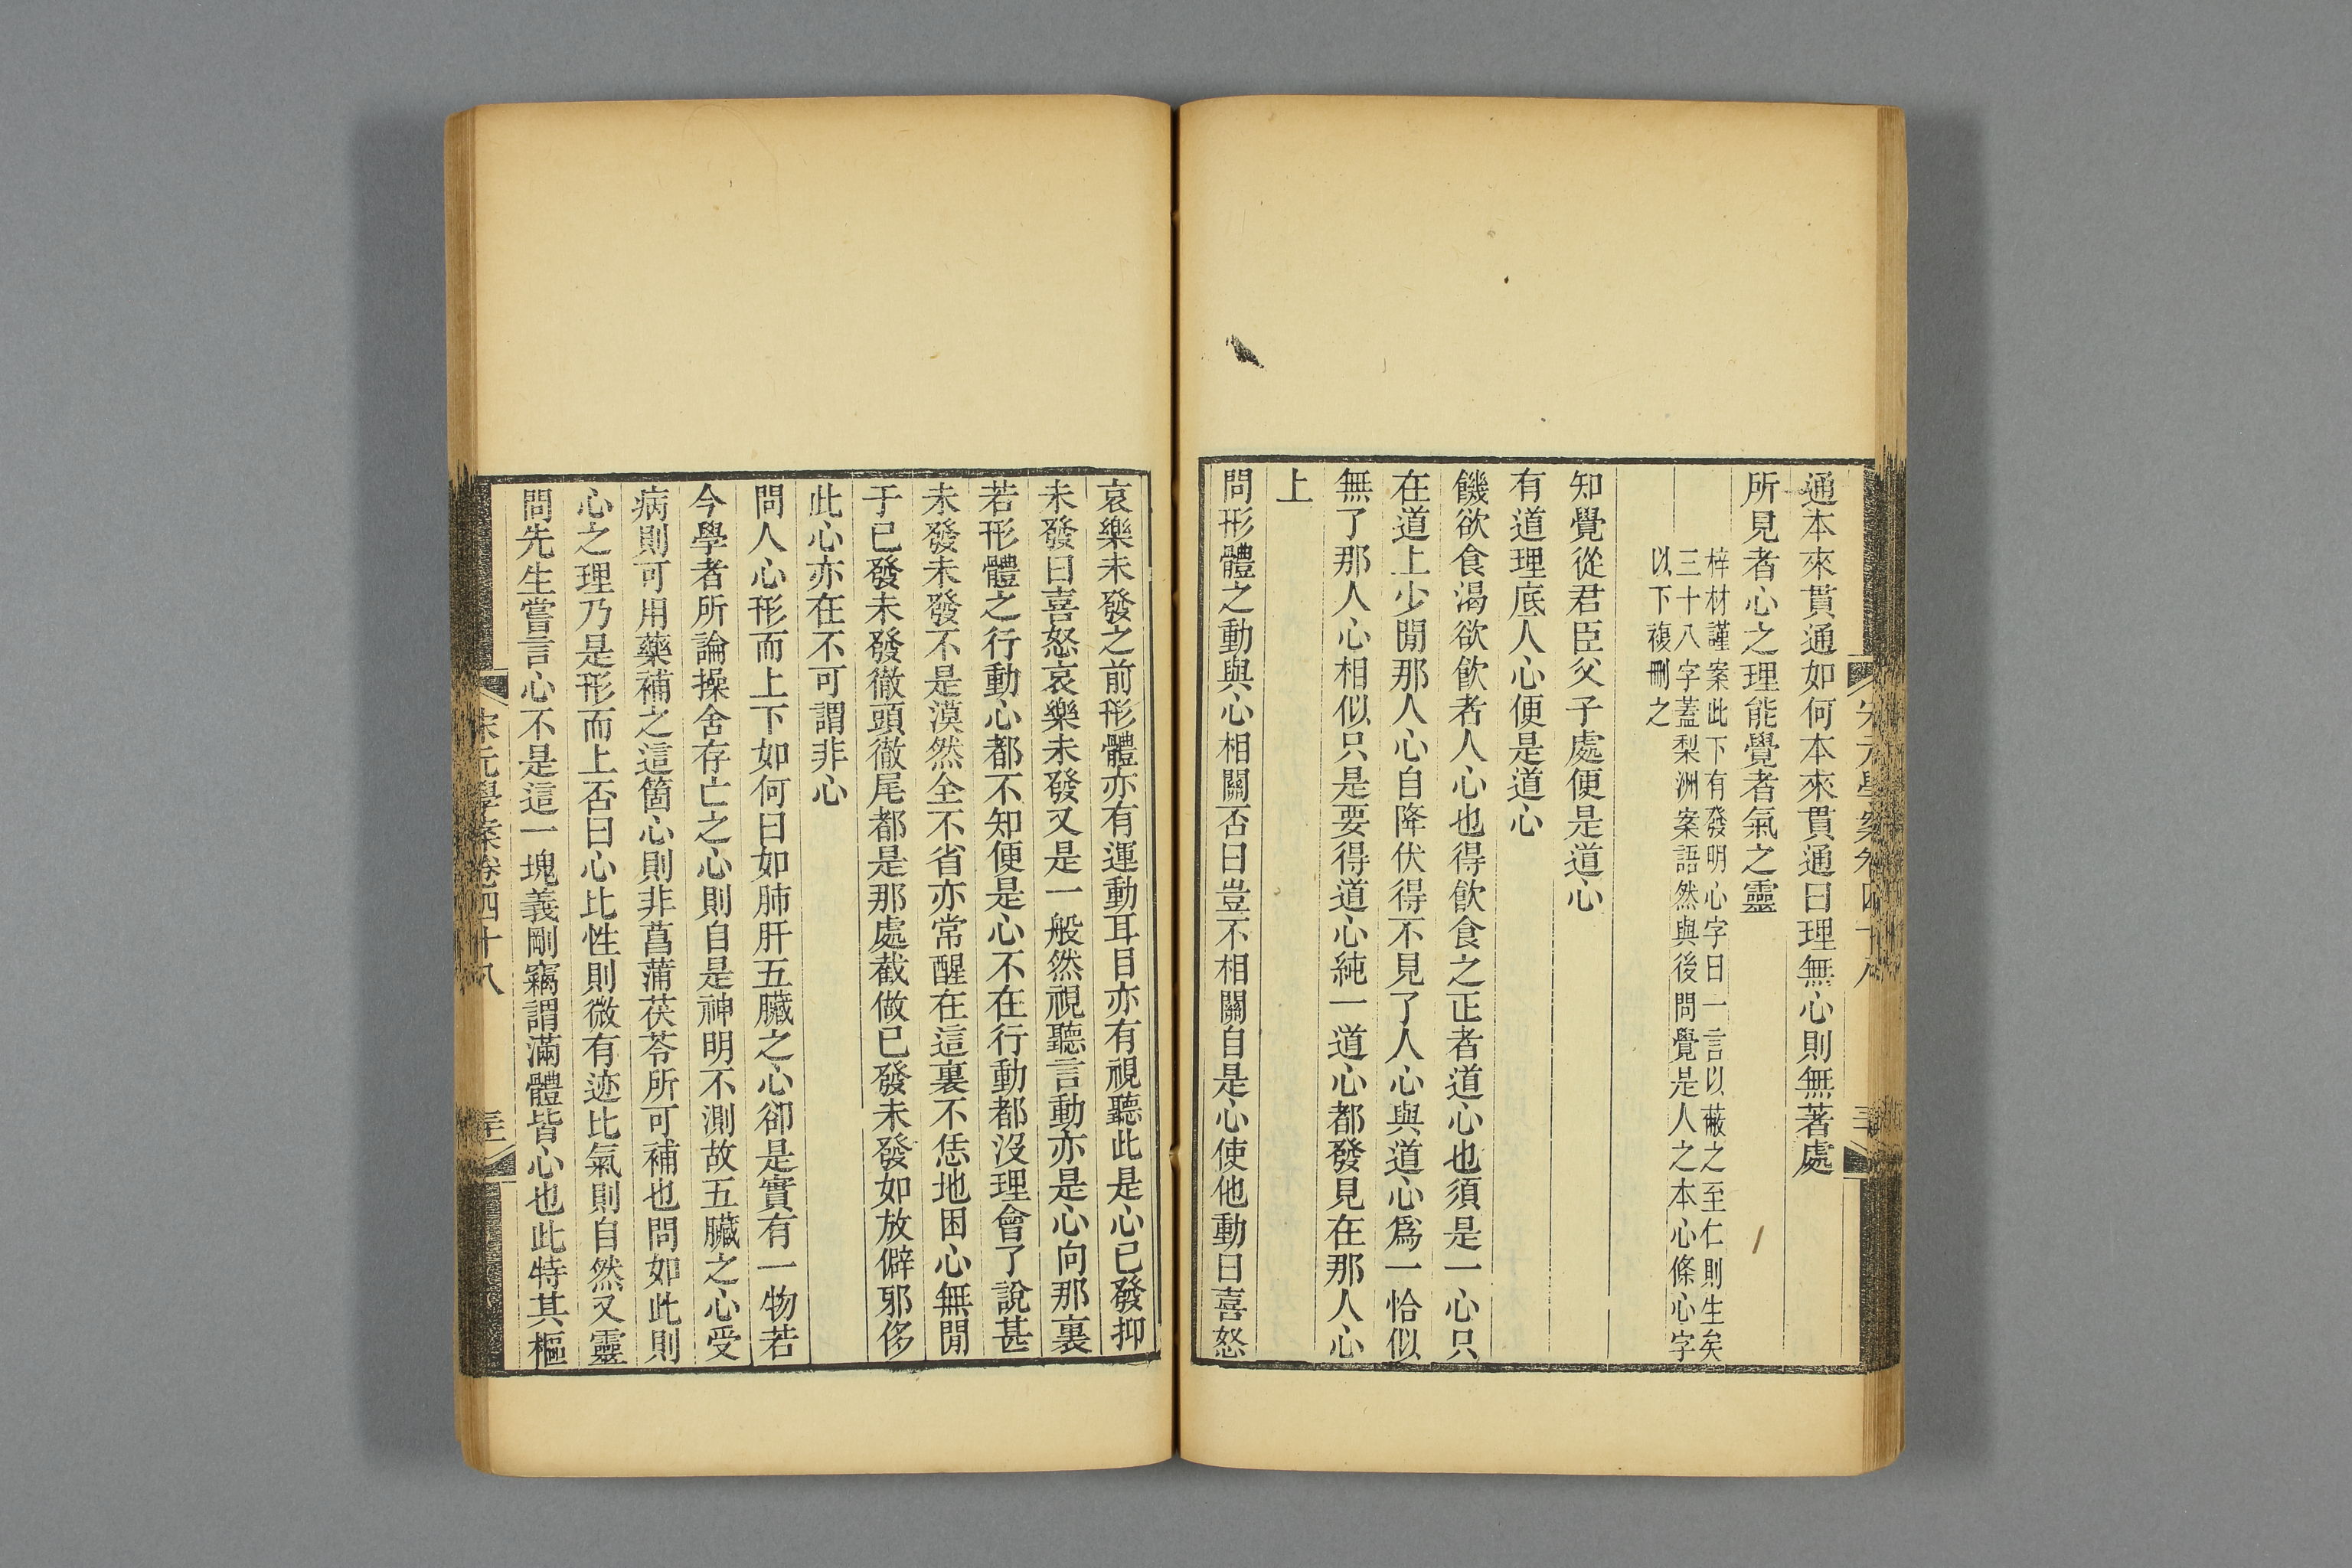 通本來貫通如何本來貫通曰理無心則無著處
所見者心之理能覺者氣之靈
梓材謹案此下有發明心字曰一言以蔽之至仁則生矣
三十八字蓋梨洲案語然與後問覺是人之本心條心字
以下複刪之
知覺從君臣父子處便是道心
有道理底人心便是道心
饑欲食渴欲飲者人心也得飲食之正者道心也須是一心只
在道上少閒那人心自降伏得不見了人心與道心爲一恰似
無了那人心相似只是要得道心純一道心都發見在那人心
上
問形體之動與心相關否曰豈不相關自是心使他動曰喜怒
哀樂未發之前形體亦有運動耳目亦有視聽此是心已發抑
未發曰喜怒哀樂未發又是一般然視聽言動亦是心向那裏
若形體之行動心都不知便是心不在行動都沒理會了說甚
未發未發不是漠然全不省亦常醒在這裏不恁地困心無閒
于已發未發徹頭徹尾都是那處截做已發未發如放僻邪侈
此心亦在不可謂非心
問人心形而上下如何曰如肺肝五臟之心卻是實有一物若
今學者所論操舍存亡之心則自是神明不測故五臟之心受
病則可用藥補之這箇心則非菖蒲茯苓所可補也問如此則
心之理乃是形而上否曰心比性則微有迹比氣則自然又靈
問先生嘗言心不是這一塊義剛竊謂滿體皆心也此特其樞
宋元學案卷四十八